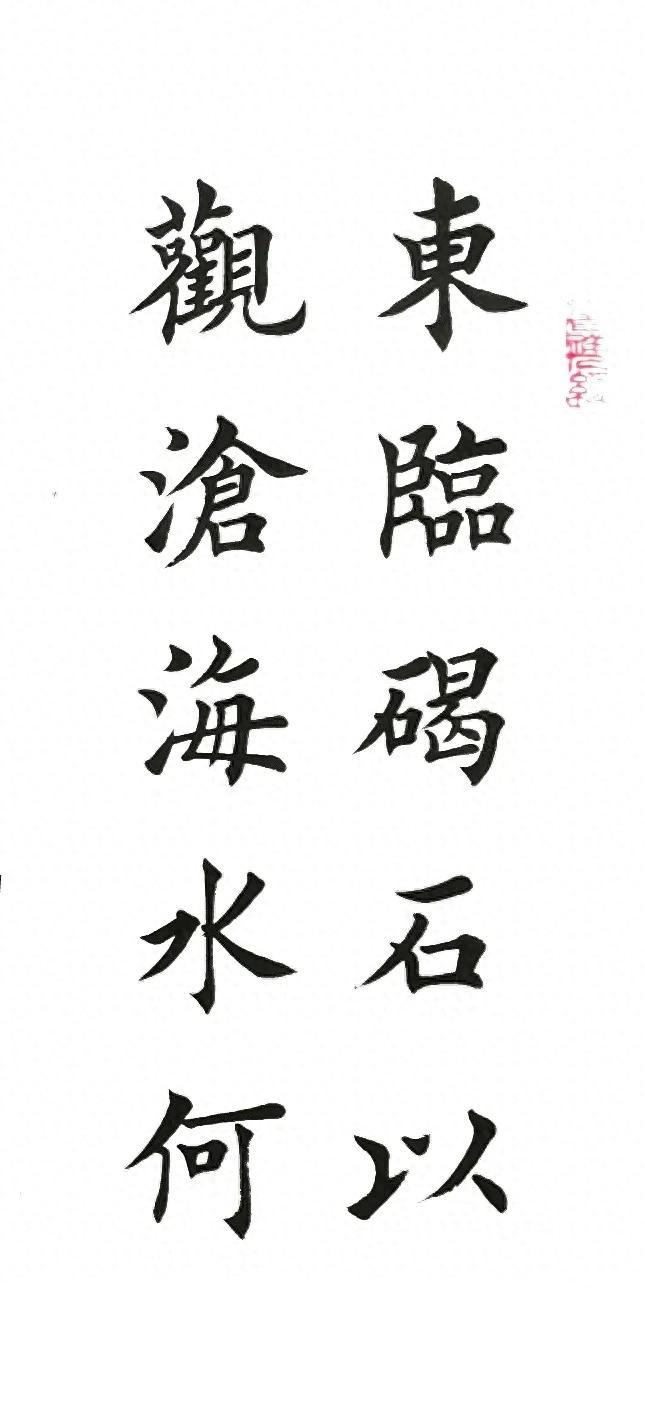 東臨碣石以
觀滄海水何